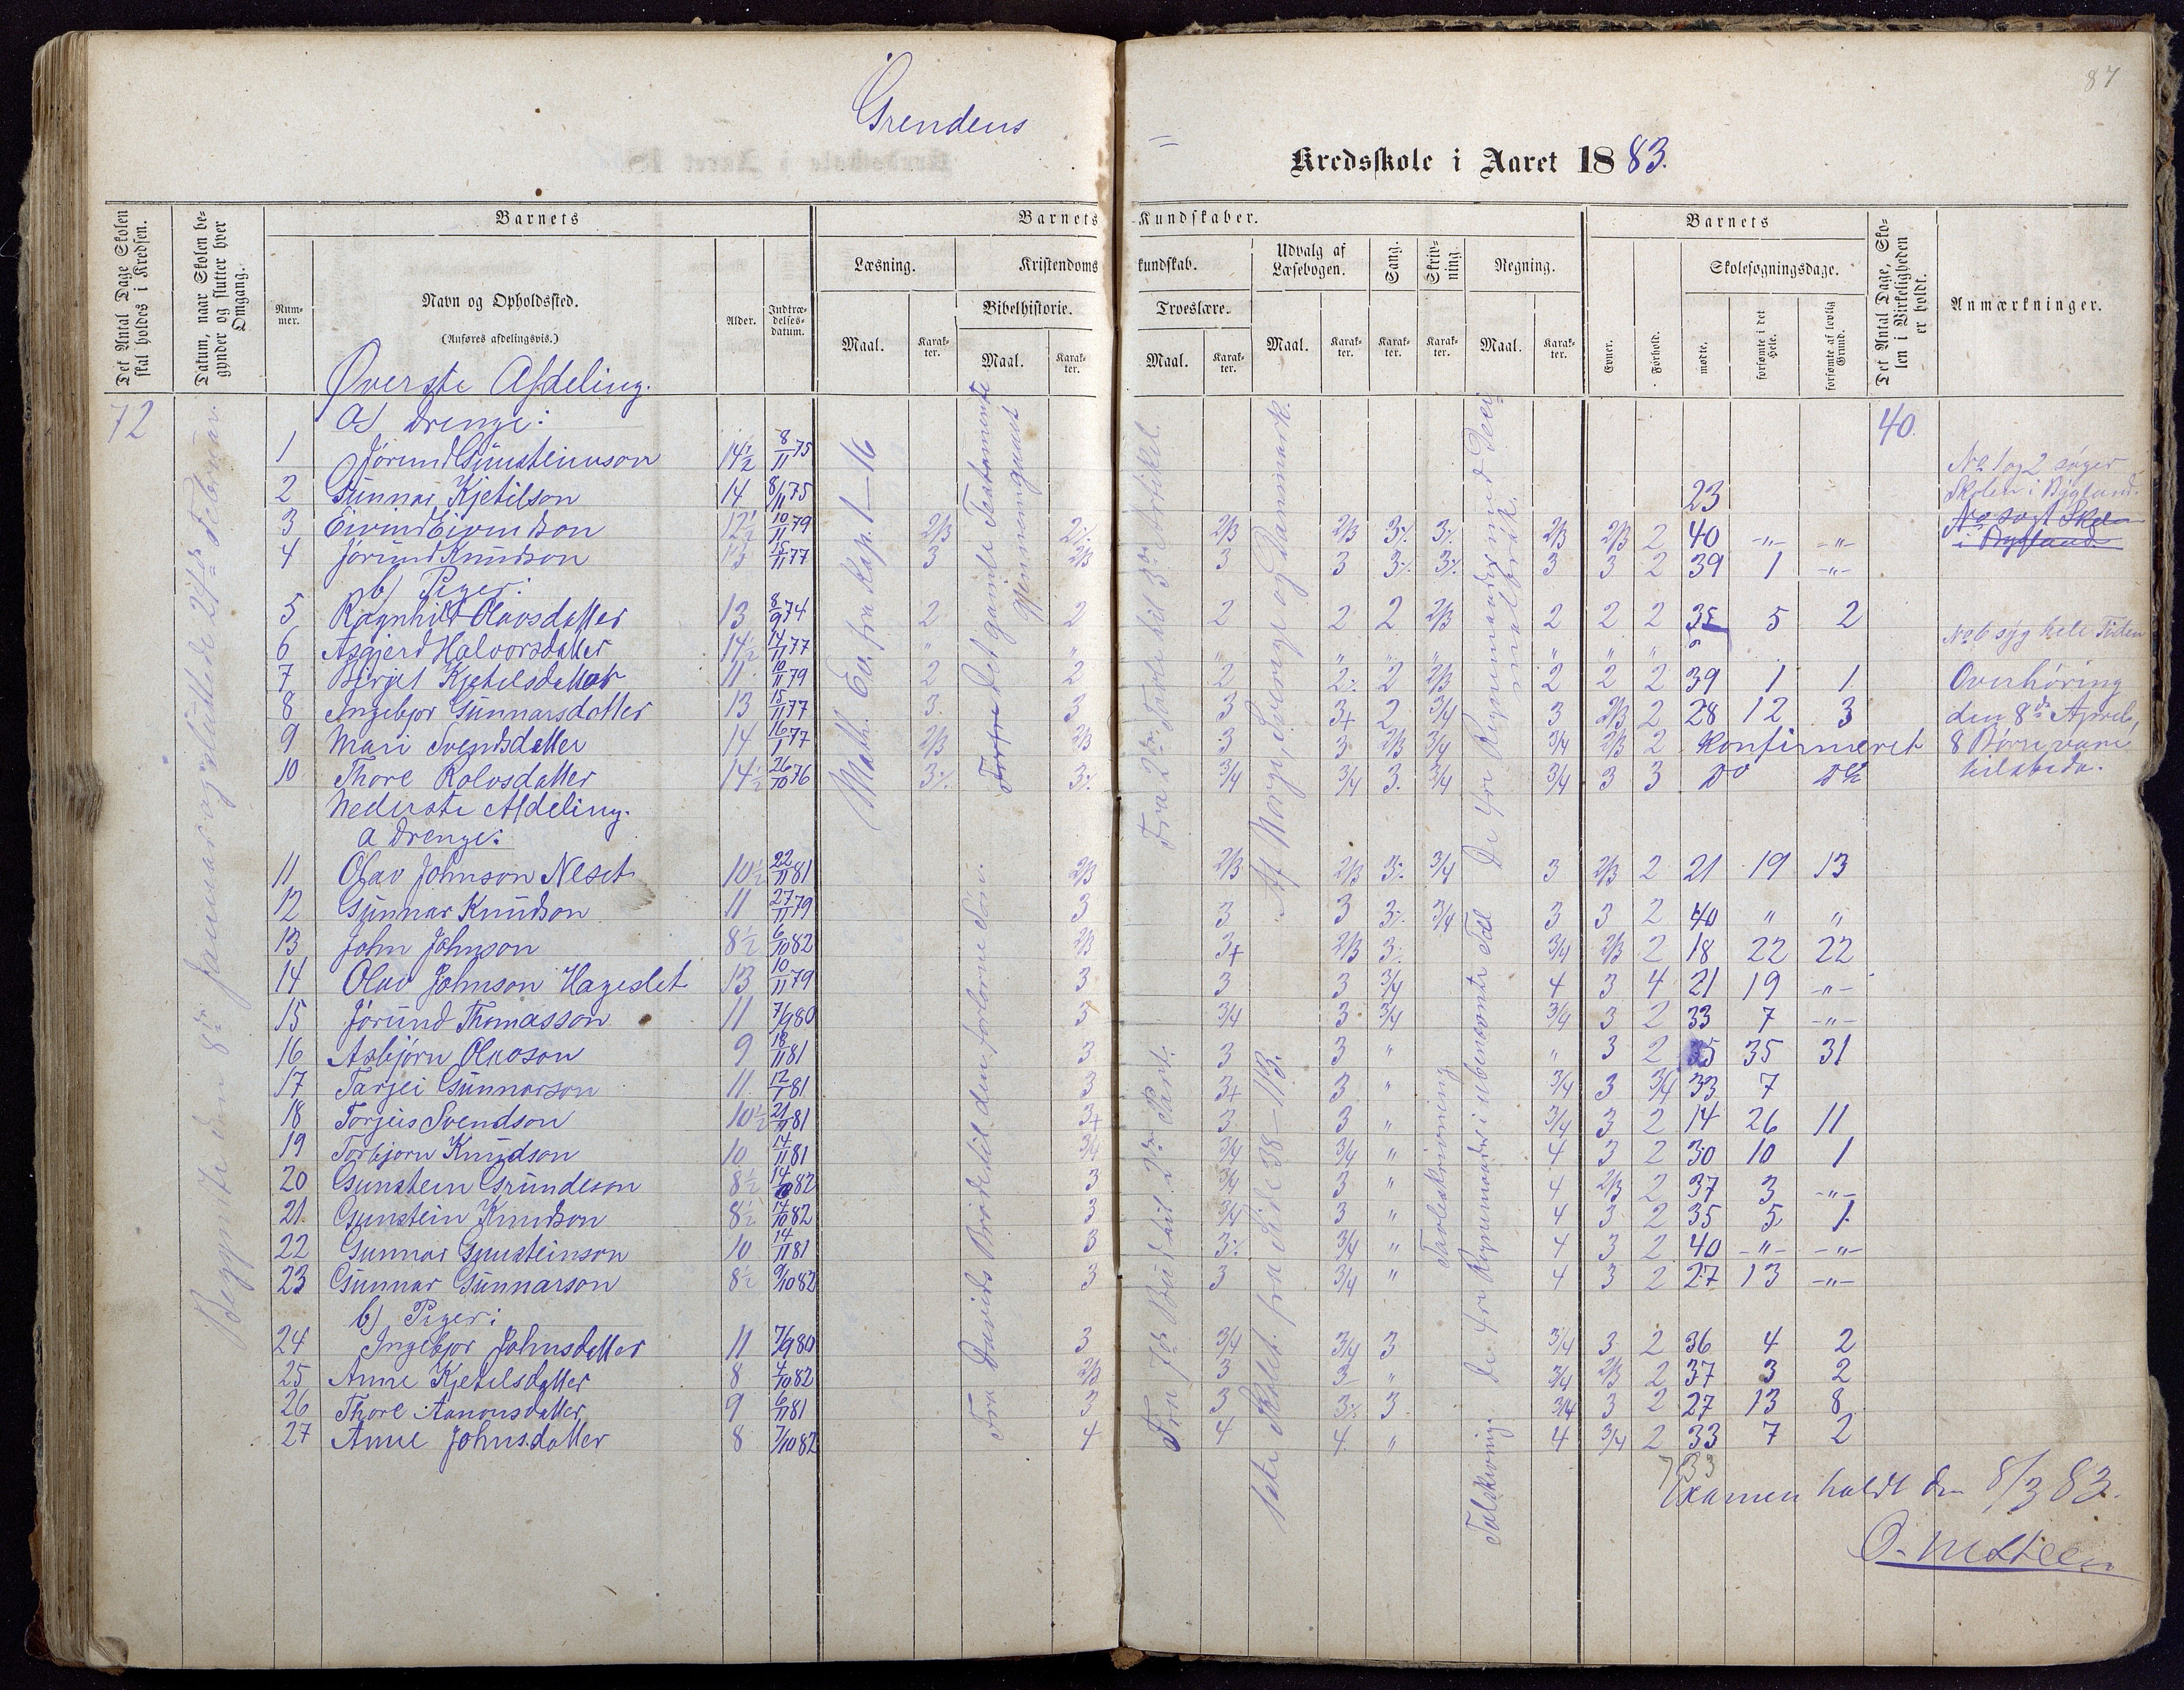 87
Grendens
Kredsskole i Aaret 1883.
Det Antal Dage Skolen skal holdes i Kredsen.
Datum, naar Skolen begynder og slutter hver Omgang.
Barnets
Nummer.
Navn og Opholdssted.
(Anføres afdelingsvis.)
Alder.
Indtrædelsesdatum.
Barnets Kundskaber.
Læsning.
Maal.
Karakter.
Kristendomskundskab.
Bibelhistorie.
Maal.
Karakter.
Troeslære.
Maal.
Karakter.
Udvalg af Læsebogen.
Maal.
Karakter.
Sang.
Karakter.
Skrivning.
Karakter.
Regning.
Maal.
Karakter.
Barnets
Evner.
Forhold.
Skolesøgningsdage.
mødte.
forsømte i det Hele.
forsømte af lovlig Grund.
Det Antal Dage, Skolen i Virkeligheden er holdt.
Anmærkninger.
72
Begyndte den 8de Januar og sluttede 24de Februar.
40.
Øverste Afdeling.
a) Drenge:
1 Jørund Gunsteinson 14½ 8/11 75
2 Gunnar Kjetilson 14 8/11 75 23
3 Eivind Eivindson 12½ 10/11 79 2/3 2% 2/3 2/3 3% 3% 2/3 2/3 2 40 -"- -"-
4 Jørund Knudson 13 15/11 77 3 2/3 3 3 3% 3% 3 3 2 39 1 -"-
b) Piger:
5 Ragnhild Olavsdatter 13 8/9 74 2 2 2 2 2 2/3 2 2 2 35 5 2
6 Asgjerd Halvorsdatter 14½ 14/11 77 " " " " " " " " "
7 Birgit Kjetilsdatter 11 10/11 79 2 2 2 2% 2 2/3 2 2 2 39 1 1
8 Ingebjor Gunnarsdatter 13 15/11 77 3 3 3 3+ 2 3/4 3 2/3 2 28 12 3
9 Mari Svendsdatter 14 16/1 77 2/3 2/3 3 3 2/3 3/4 3/4 2/3 2 Konfirmeret
10 Thore Rolvsdatter 14½ 26/10 76 3% 3% 3/4 3/4 3. 3/4 3/4 3 3 Do Do
Nederste Afdeling.
a Drenge:
11 Olav Johnson Neset 10½ 22/11 81 2/3 2/3 2/3 3% 3/4 3 2/3 2 21 19 13
12 Gunnar Knudson 11 27/11 79 3 3 3 3% 3/4 3 3 2 40 " "
13 John Johnson 8½ 6/10 82 2/3 3+ 2/3 3% 3/4 2/3 2 18 22 22
14 Olav Johnson Hageslet 13 10/11 79 3 3 3 3/4 4 3 4 21 19 -"-
15 Jørund Thomasson 11 7/9 80 3 3/4 3 3/4 3/4 3 2 33 7 -"-
16 Asbjørn Olavson 9 18/11 81 3 3 3 " " 3 2 5 35 31
17 Tarjei Gunnarson 11 12/1 81 3 3+ 3 " 3/4 3 3/4 33 7
18 Torjus Svendson 10½ 21/11 81 3+ 3 3 " 3/4 3 2 14 26 11
19 Torbjørn Knudson 10 14/11 81 3/4 3/4 3/4 " 4 3 2 30 10 1
20 Gunstein Grundeson 8½ 14/10 82 3 3/4 3 " 4 2/3 2 37 3 -"-
21 Gunstein Knudson 8½ 14/10 82 3 3/4 3 " 4 3 2 35 5 1
22 Gunnar Gunsteinson 10 14/11 81 3 3% 3/4 " 4 3 2 40 -"- -"-
23 Gunnar Gunnarson 8½ 9/10 82 3 3 3/4 " 4 3 2 27 13 -"-
b) Piger:
24 Ingebjor Johnsdatter 11 7/9 80 3 3/4 3/4 3 3/4 3 2 36 4 2
25 Anne Kjetilsdatter 8 4/10 82 2/3 3 3 " 3/4 2/3 2 37 3 2
26 Thore Aanonsdatter 9 6/11 81 3 3 3% 3 3/4 3 2 27 13 8
27 Anne Johnsdatter 8 7/10 82 4 4 4 " 4 3/4 2 33 7 2
Math. Ev. fra Kap. 1-16
Det gamle Testamente gjennemgaaet
Fra Davids Brødre til den forlorne Søn.
Fra 2den Part til 3die Artikel.
Fra 7de Bud til 2den Part.
Af Norge, Sverige og Danmark.
1ste Skolet. fra Side 38-113.
De 4re Regnemaader med
De 4re Regnemaader i ubenævnte Tal
Tavleskrivning
Talskrivning.
No 1 og 2 søger Skolen i Bygland.
No 6 syg hele Tiden
Overhøring den 8de April, 8 Børn vare tilstede.
Examen holdt den 8/3 83.